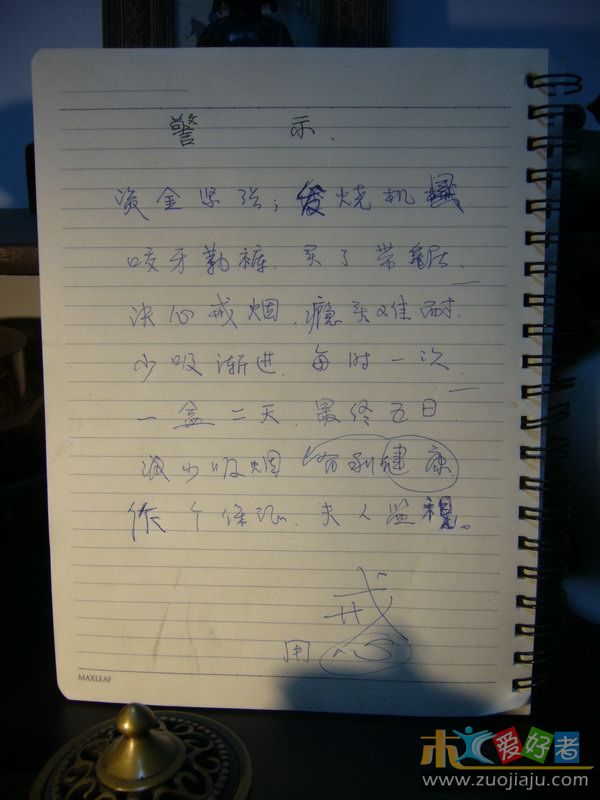 警 示.
资金紧张; 发烧机
咬牙勒裤. 买了带锯.
决心戒烟. 瘾头难耐.
少吸渐进. 每时一次.
一盒二天. 最终五日.
减少吸烟 有利健康
作个保证. 夫人监视。
戒
用心
MAXLEAF
木工爱好者
www.zuojiaju.com